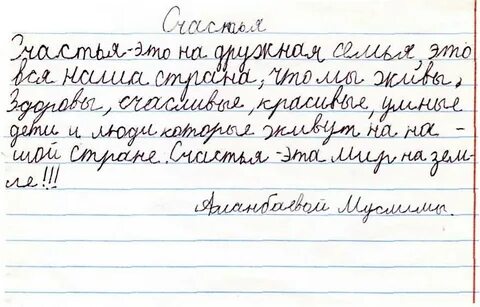 Счастья
Зчастья-это на дружная семья, это
вся наша страна, что мы живы,
Здоровы, счасливые, красивые, умные
дети и люди которые живут на на -
шой стране. Счастья -эта мир на зем-
ле!!!
Аманбаевой Муслимы.